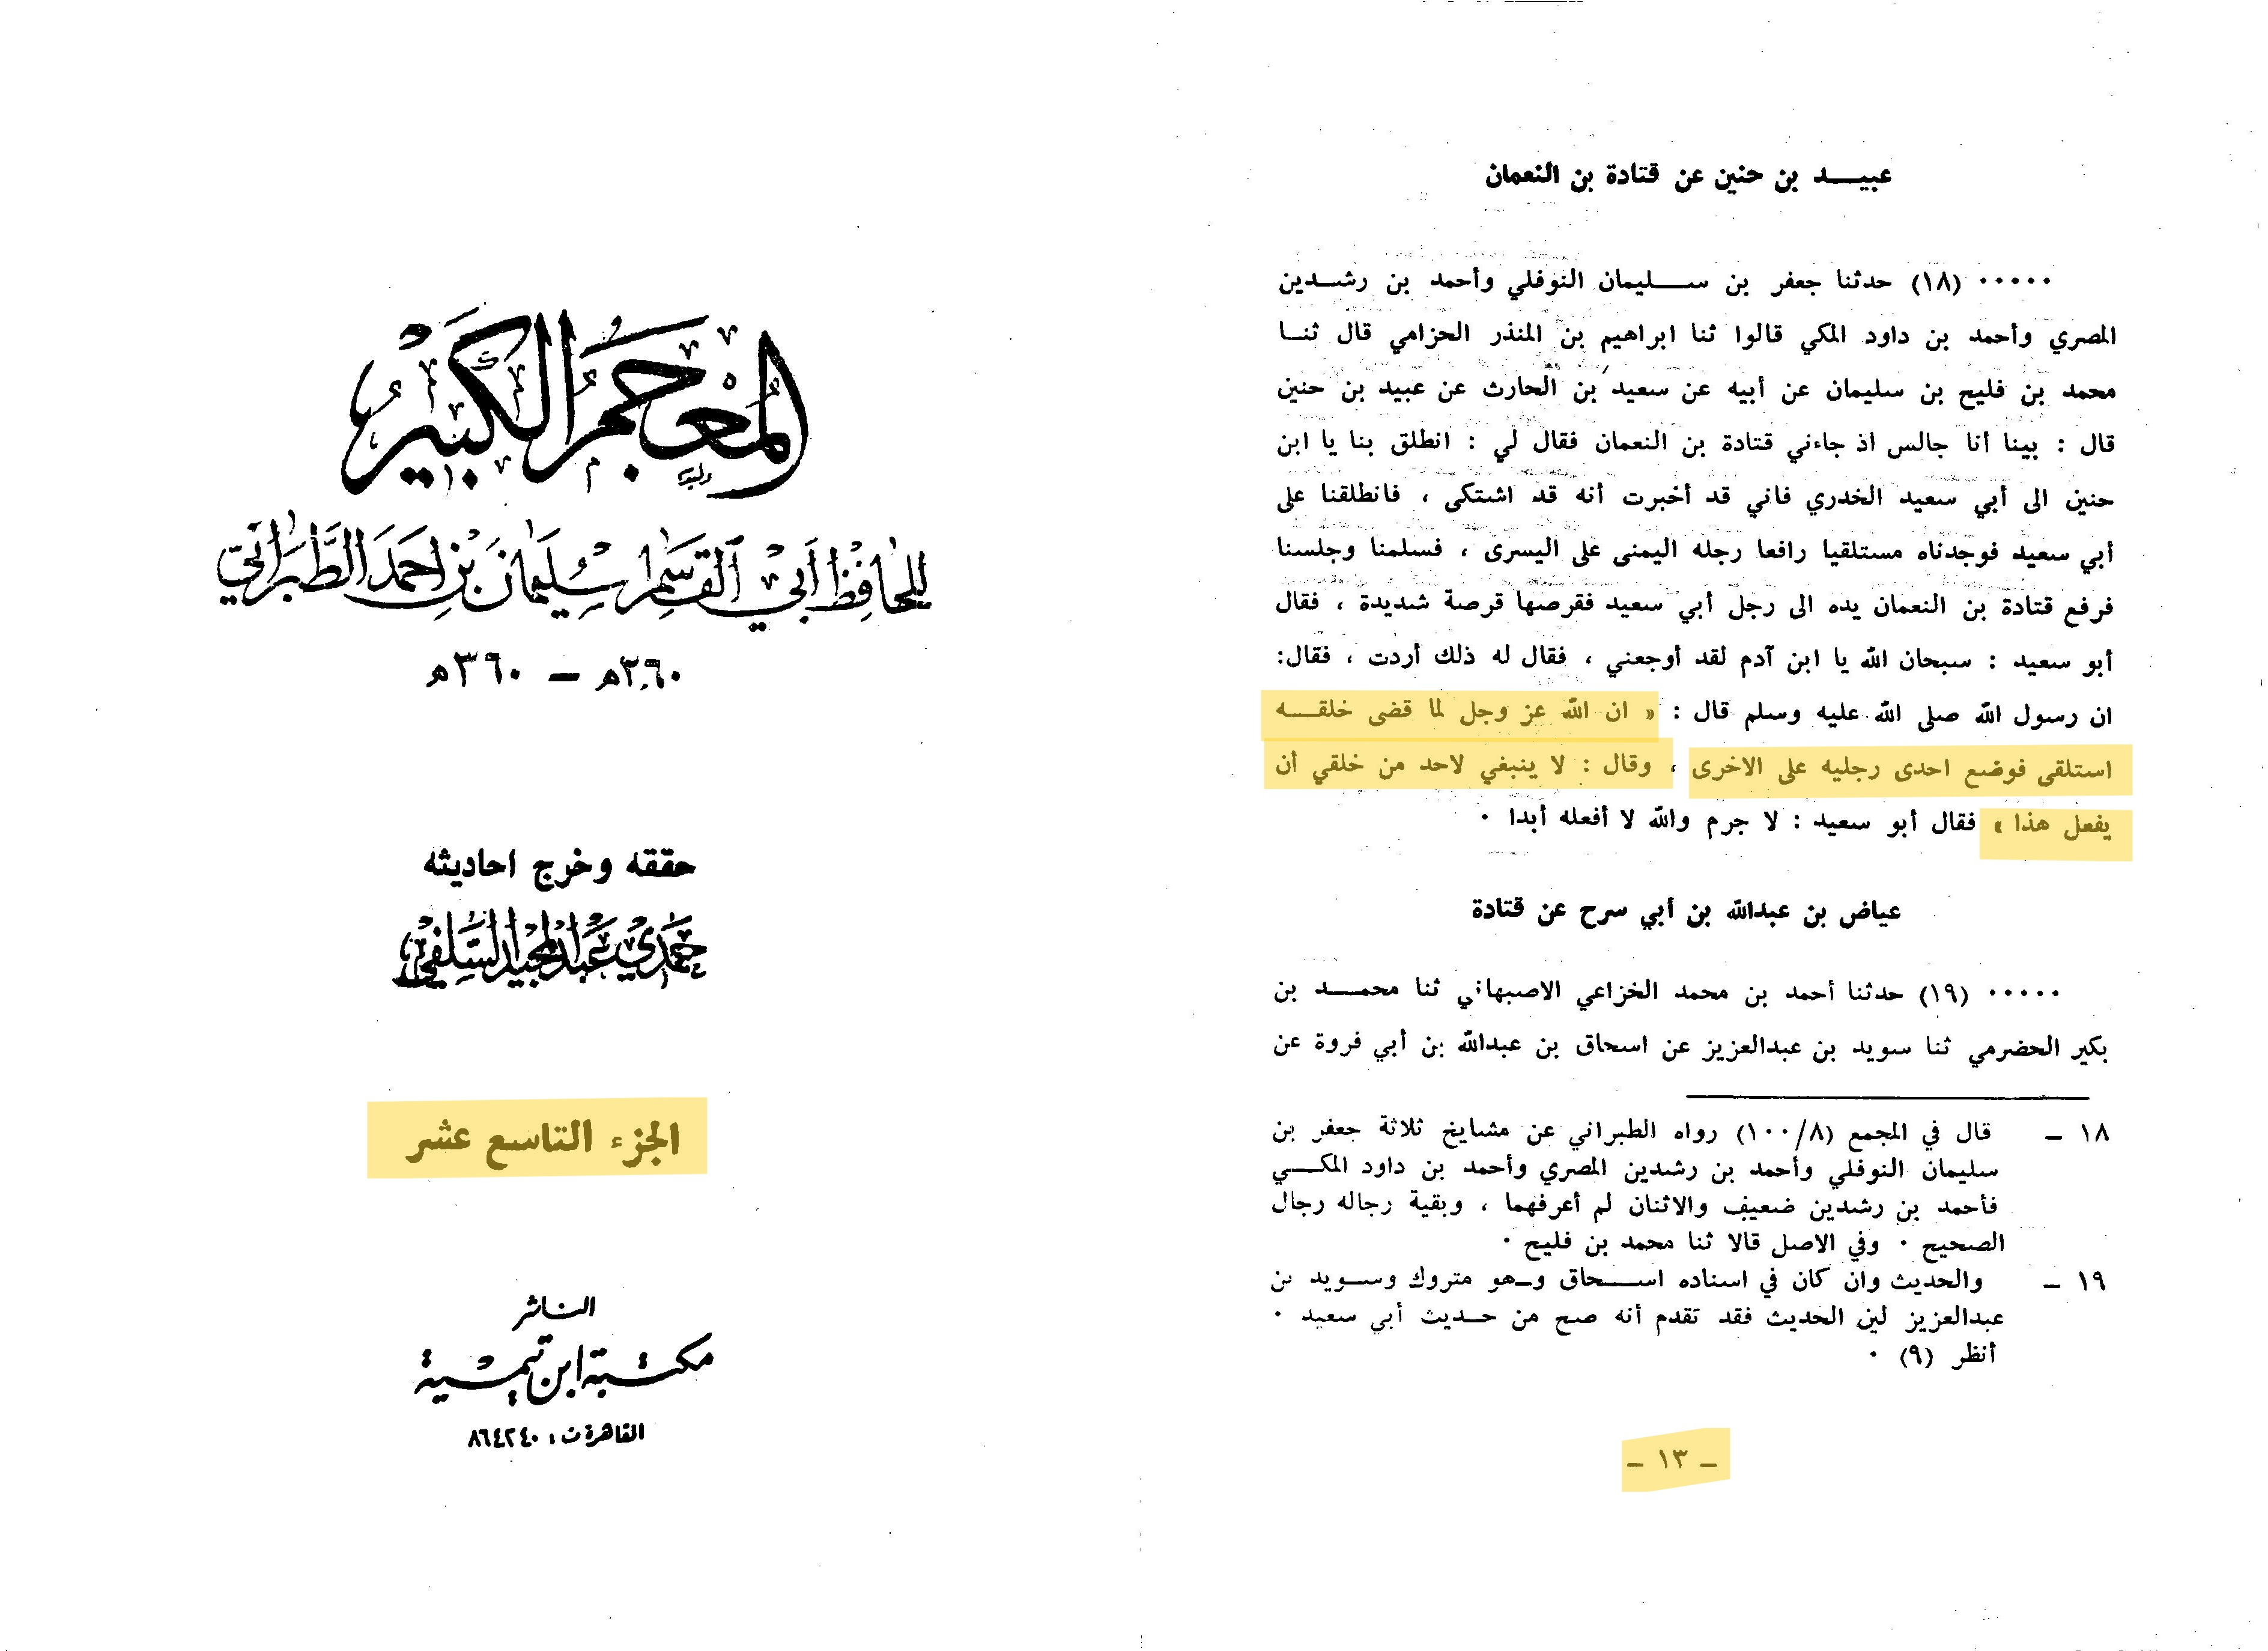 المعجم الكبير
للحافظ أبي القاسم سليمان بن احمد الطبراني
٢٦٠هـ – ٣٦٠هـ
حققه وخرج احاديثه
حمدي عبد المجيد السلفي
الجزء التاسع عشر
الناشر
مكتبة ابن تيمية
القاهرة ت : ٨٦٤٢٤٠
عبيـــد بن حنين عن قتادة بن النعمان
٠٠٠٠٠ (١٨) حدثنا جعفر بن ســـليمان النوفلي وأحمد بن رشـدين
المصري وأحمد بن داود المكي قالوا ثنا ابراهيم بن المنذر الحزامي قال ثنـا
محمد بن فليح بن سليمان عن أبيه عن سعيد بن الحارث عن عبيد بن حنين
قال : بينا أنا جالس اذ جاءني قتادة بن النعمان فقال لي : انطلق بنا يا ابن
حنين الى أبي سعيد الخدري فاني قد أخبرت أنه قد اشتكى ، فانطلقنا على
أبي سعيد فوجدناه مستلقيا رافعا رجله اليمنى على اليسرى ، فسلمنا وجلسنا
فرفع قتادة بن النعمان يده الى رجل أبي سعيد فقرصها قرصة شديدة ، فقال
أبو سعيد : سبحان الله يا ابن آدم لقد أوجعني ، فقال له ذلك أردت ، فقال:
ان رسول الله صلى الله عليه وسلم قال : « ان الله عز وجل لما قضى خلقــه
استلقى فوضع احدى رجليه على الاخرى ، وقال : لا ينبغي لاحد من خلقي أن
يفعل هذا » فقال أبو سعيد : لا جرم والله لا أفعله أبدا ٠
عياض بن عبدالله بن أبي سرح عن قتادة
٠٠٠٠٠ (١٩) حدثنا أحمد بن محمد الخزاعي الاصبهاني ثنا محمــد بن
بكير الحضرمي ثنا سويد بن عبدالعزيز عن اسحاق بن عبدالله بن أبي فروة عن
١٨ – قال في المجمع (١٠٠/٨) رواه الطبراني عن مشايخ ثلاثة جعفر بن
سليمان النوفلي وأحمد بن رشدين المصري وأحمد بن داود المكــي
فأحمد بن رشدين ضعيف والاثنان لم أعرفهما ، وبقية رجاله رجال
الصحيح ٠ وفي الاصل قالا ثنا محمد بن فليح ٠
١٩ – والحديث وان كان في اسناده اســحاق وـهو متروك وسـويد بن
عبدالعزيز لين الحديث فقد تقدم أنه صح من حـديث أبي سعيد ٠
أنظر (٩) ٠
– ١٣ –